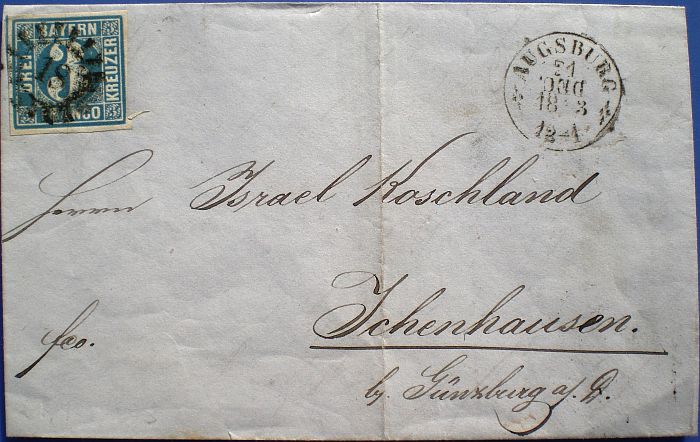 BAYERN
DREI
KREUZER
FRANCO
AUGSBURG
21
DEC
12-1
Herrn Israel Koschland
Ichenhausen.
fco.
by. Günzburg a/. D.